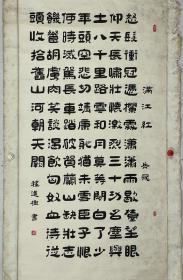 滿江紅 岳飛
怒髮衝冠憑欄處瀟瀟雨歇擡望眼
仰天長嘯壯懷激烈三十功名塵與
土八千里路雲和月莫等閒白了少
年頭空悲切靖康恥猶未雪臣子恨
何時滅駕長車踏破賀蘭山缺壯志
饑餐胡虜肉笑談渴飲匈奴血待從
頭收拾舊山河朝天闕
書